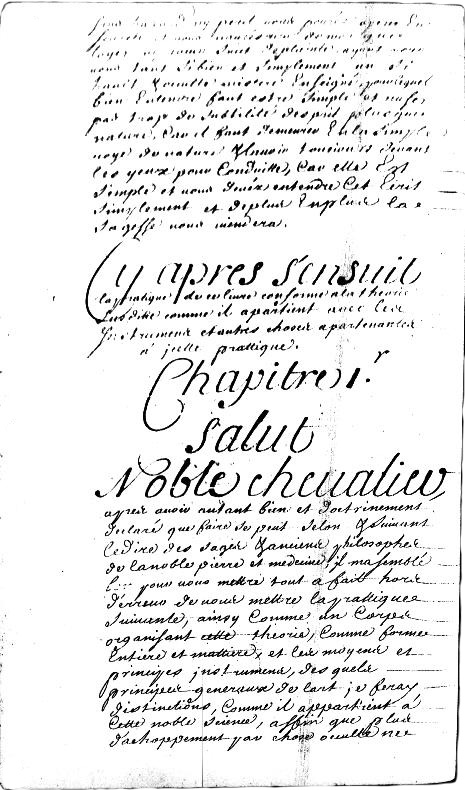 peut nous
secrete et nous
nous tant si bien et simplement
bien Entendre faut estre simple et
pas trop de subtilité desprit plus que
nature, Car il faut demeurer En la simple
voye de nature & lavoir tousiours devant
les yeux pour Conduitte, Car elle Est
simple et vous devéz entendre Cet Ecrit
simplement et deplus Enplus la
sagesse vous
Cy apres s'ensuit
la pratique de ce livre conforme ala theorie
susdite comme il apartient avec les
Jnstrumens et autres choses apartenantes
à jcelle prattique.
Chapitre 1.r
Salut
Noble cheualier,
apres avoir autant bien et doctrinement
declaré que faire se peut selon & suivant
ledire des sages & anciens philosophes
de lanoble pierre et medecine, jl ma semblé
pour vous mettre tout a fait hors
derreur de vous mettre la prattique
suivante, ainsy Comme un Corps
organisant cette theorie, Comme forme
Entiere et mattiere, et les moyens et
principes jnstrumens, des quels
principes generaux de lart je feray
distinctions, Comme il appartient à
Cette noble science, affin que plus
d'achoppement par chose occulte ne